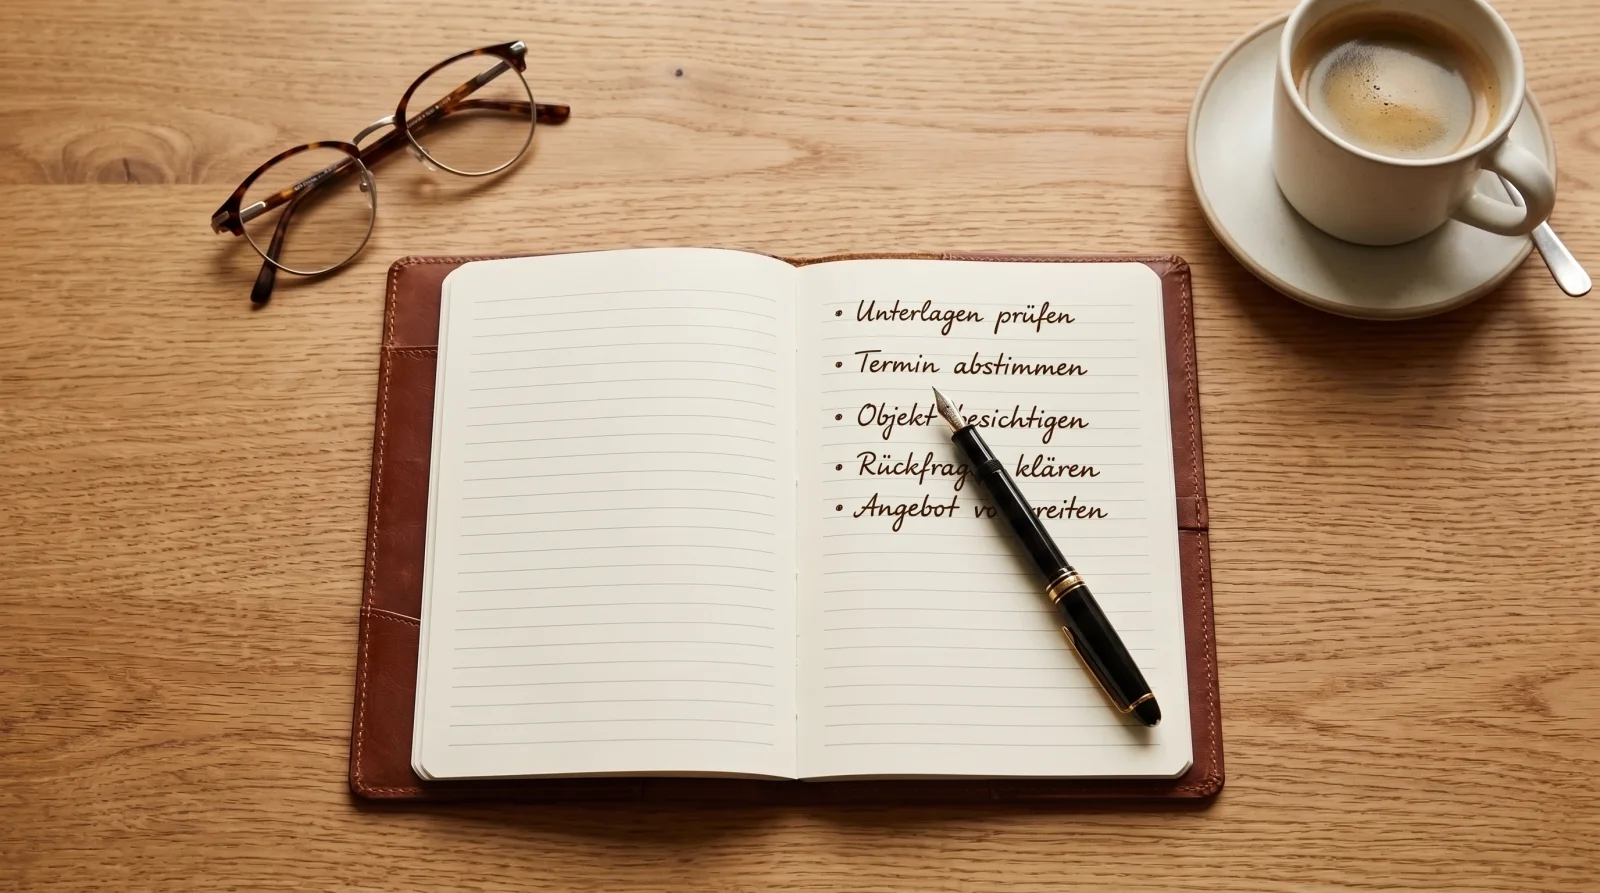 • Unterlagen prüfen
• Termin abstimmen
• Objekt besichtigen
• Rückfragen klären
• Angebot vorbereiten